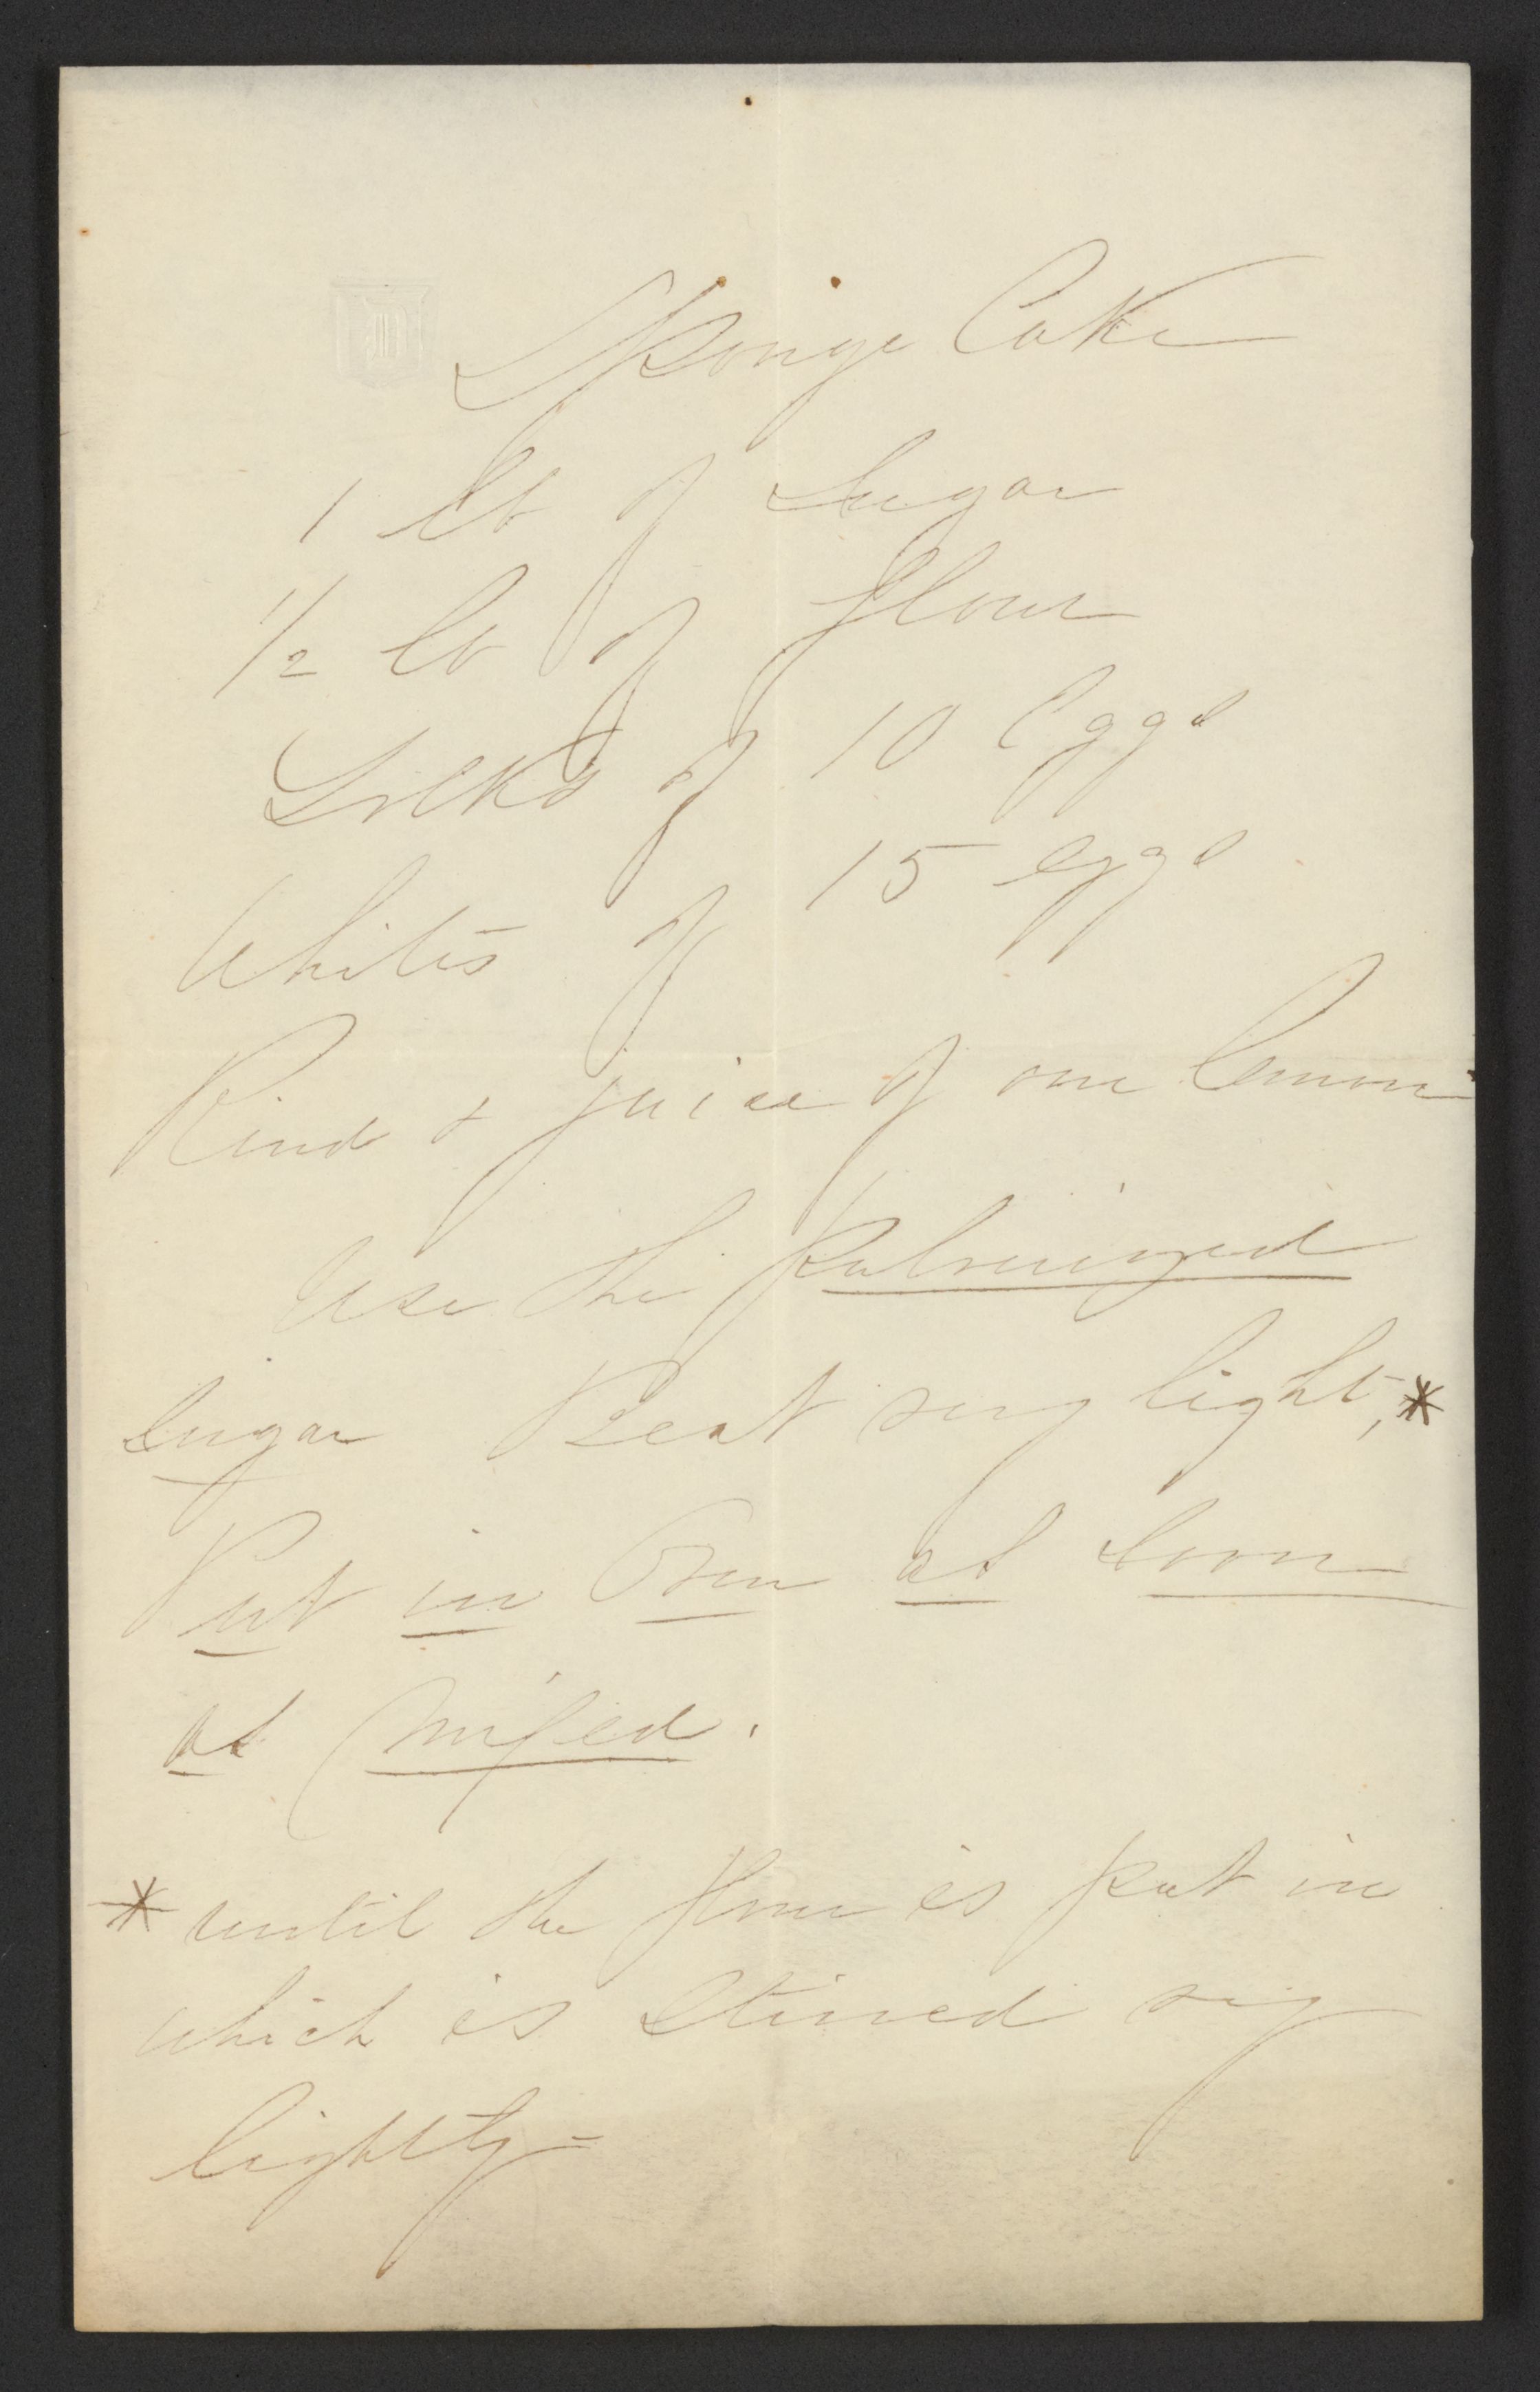 Sponge Cake
1 lb of Sugar
1/2 lb of flour
Yolks of 10 Eggs
Whites of 15 eggs
Rind & juice of one lemon
Use the pulverized
Sugar Beat very light, *
Put in Oven as soon
as mixed.
* until the flour is put in
which is stirred very
lightly =